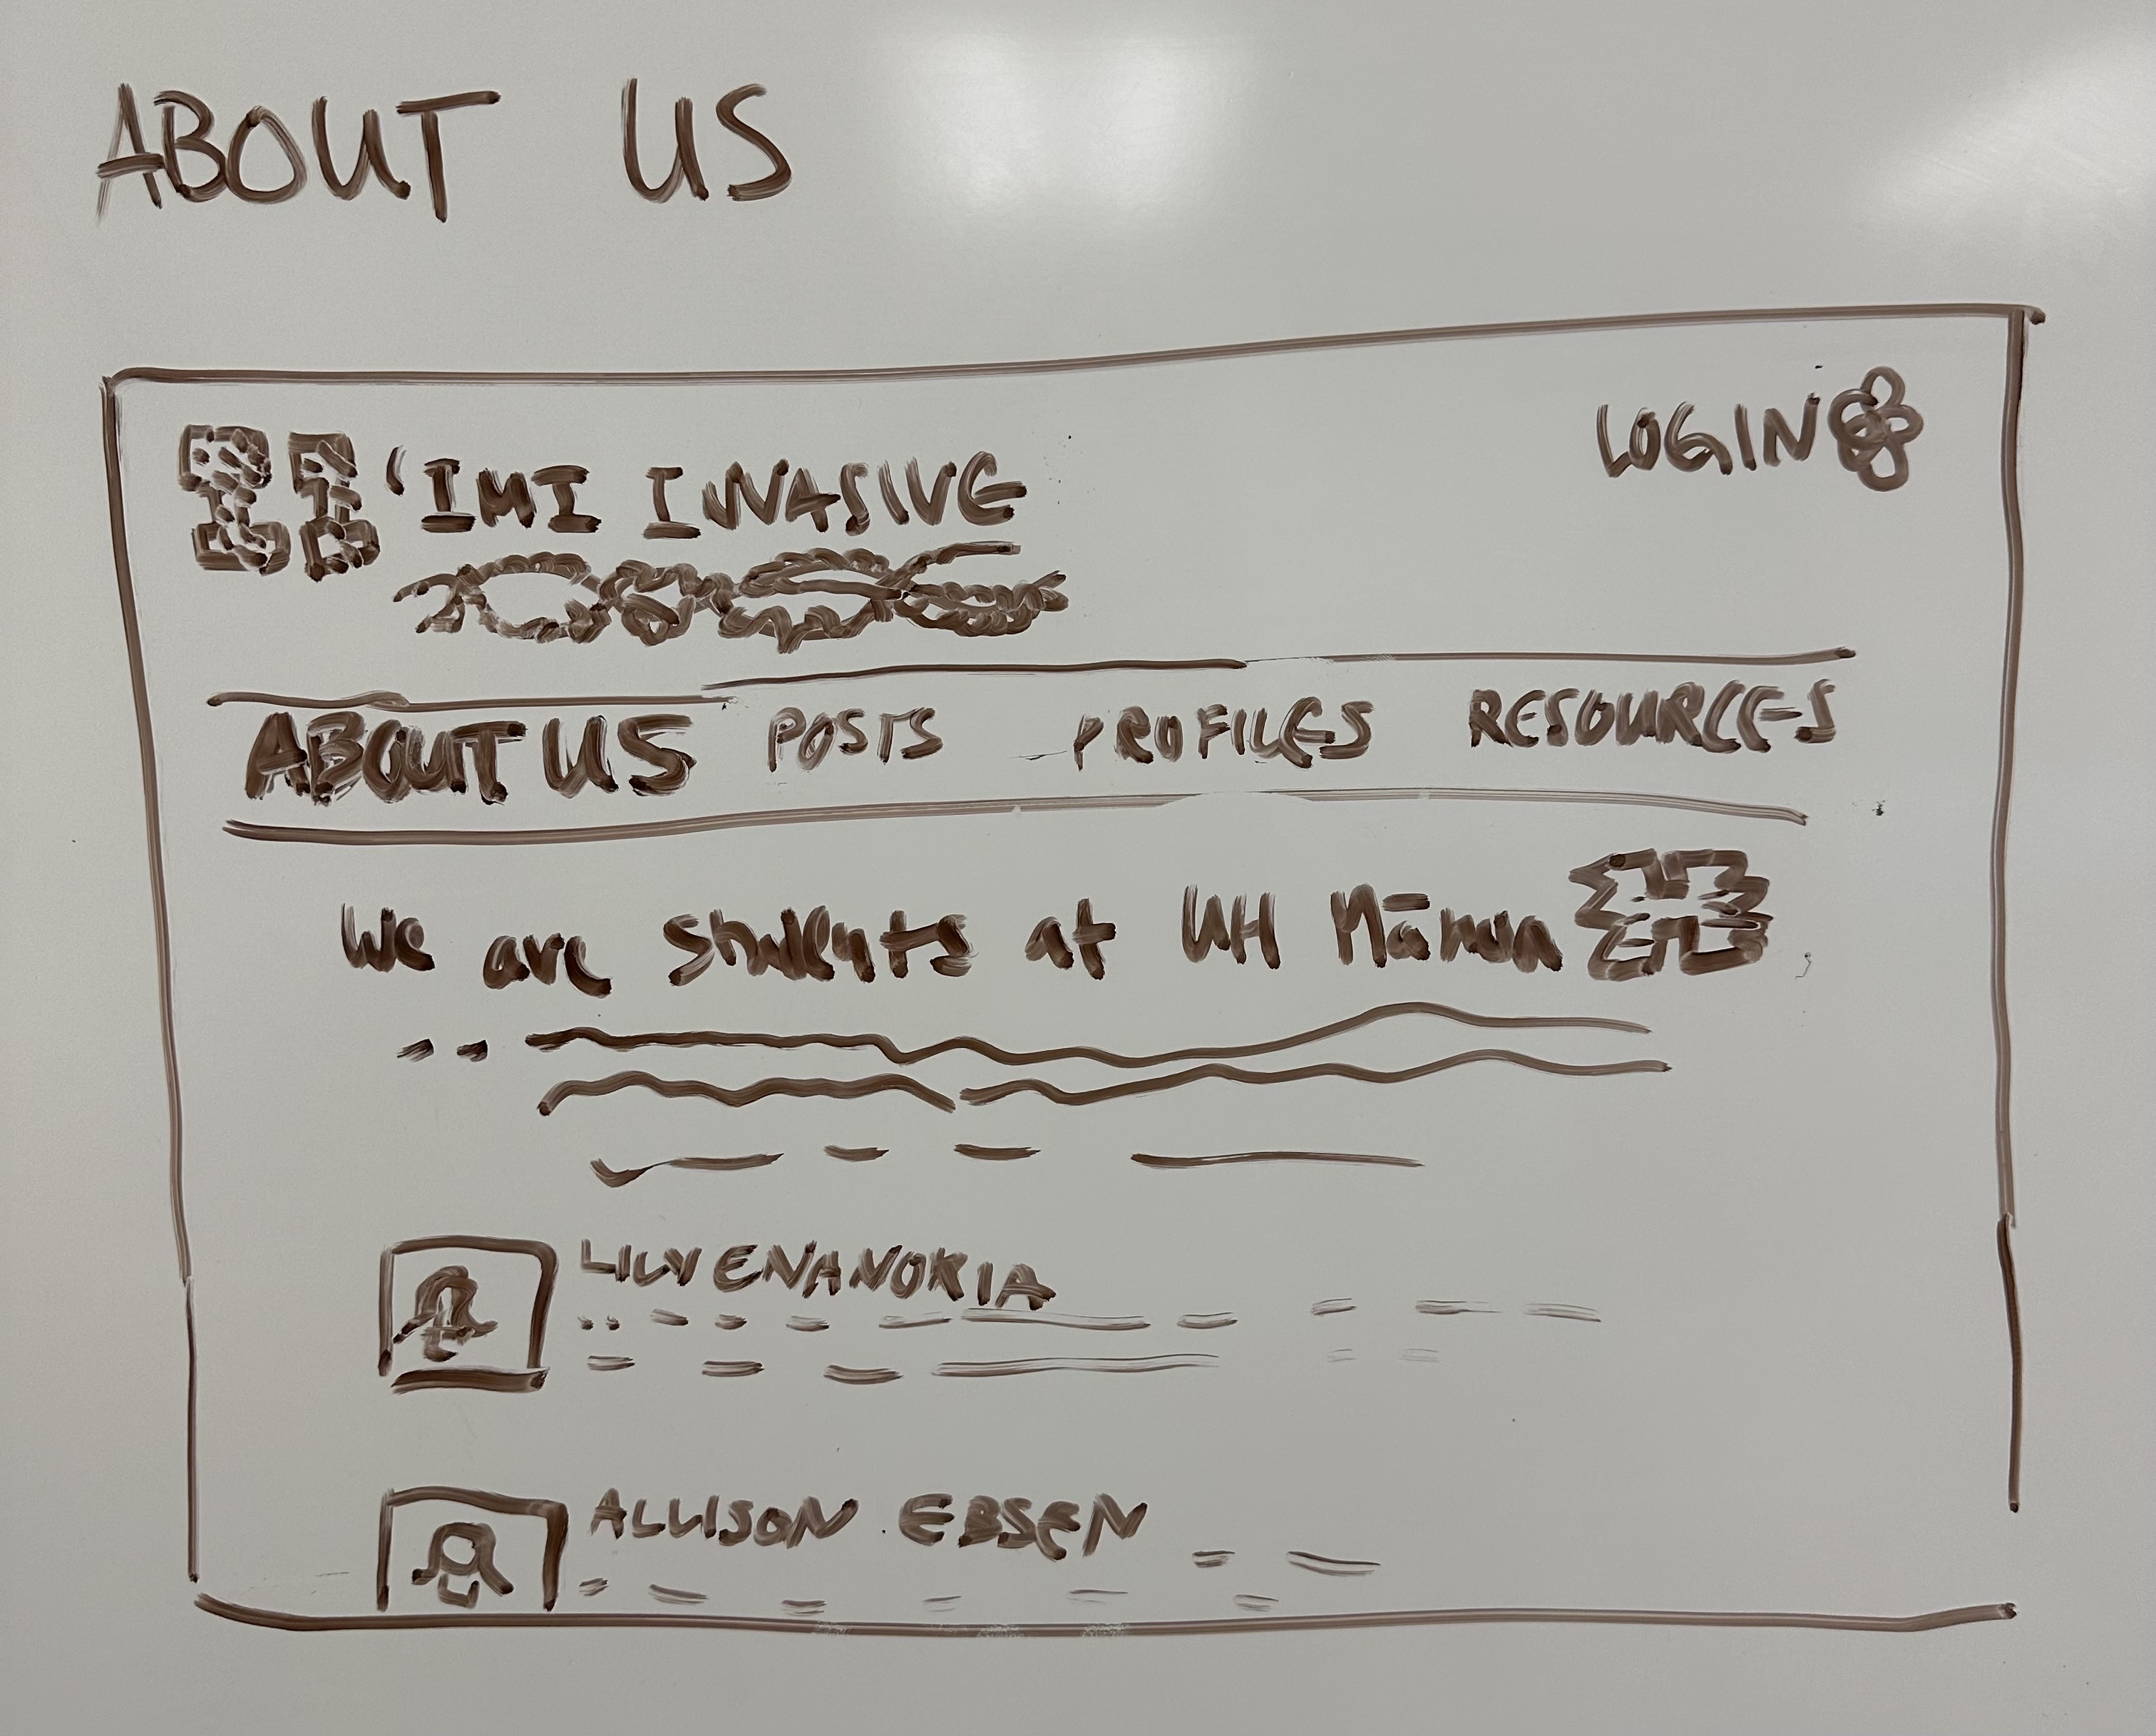 ABOUT US
LOGIN
'IMI INVASIVE
ABOUT US POSTS PROFILES RESOURCES
We are students at UH Mānoa
LILY ENANORIA
ALLISON EBSEN